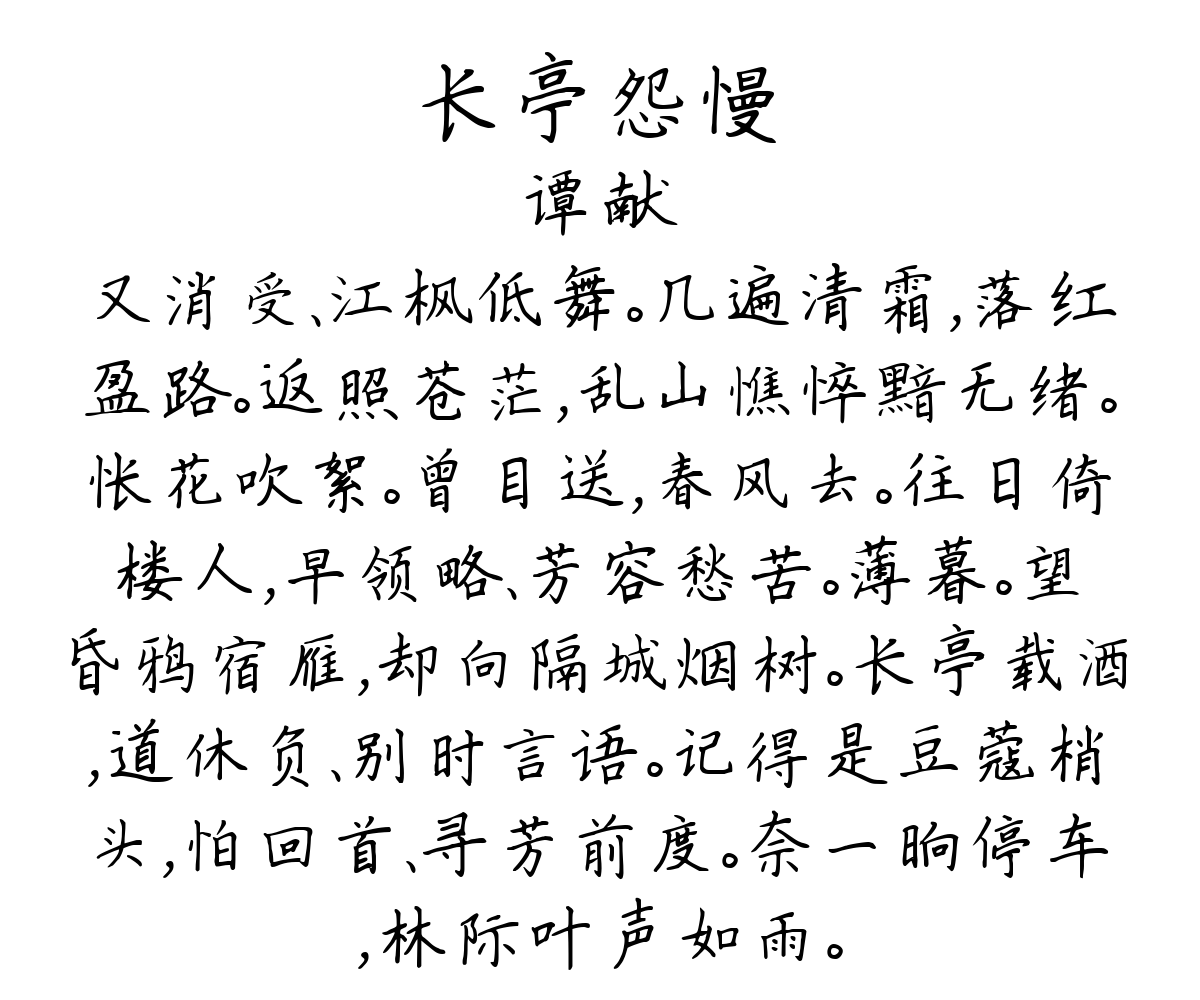 长亭怨慢
谭献
又消受、江枫低舞。几遍清霜,落红
盈路。返照苍茫,乱山憔悴黯无绪。
怅花吹絮。曾目送,春风去。往日倚
楼人,早领略、芳容愁苦。薄暮。望
昏鸦宿雁,却向隔城烟树。长亭载酒
,道休负、别时言语。记得是豆蔻梢
头,怕回首、寻芳前度。奈一晌停车
,林际叶声如雨。